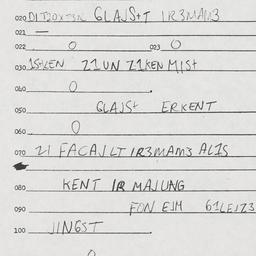 020 DITJOXTEN GLAJS+T IR3MAM3
021 —
022 O 023 O
030 1S+LEN Z1UN Z1KEN MIS+
040 O
050 GLAJS+ ERKENT
060 O
070 Z1 FACAJLT IR3MAM3 AL1S
080 KENT IR MAJUNG
090 FON EJM
100 JINGST